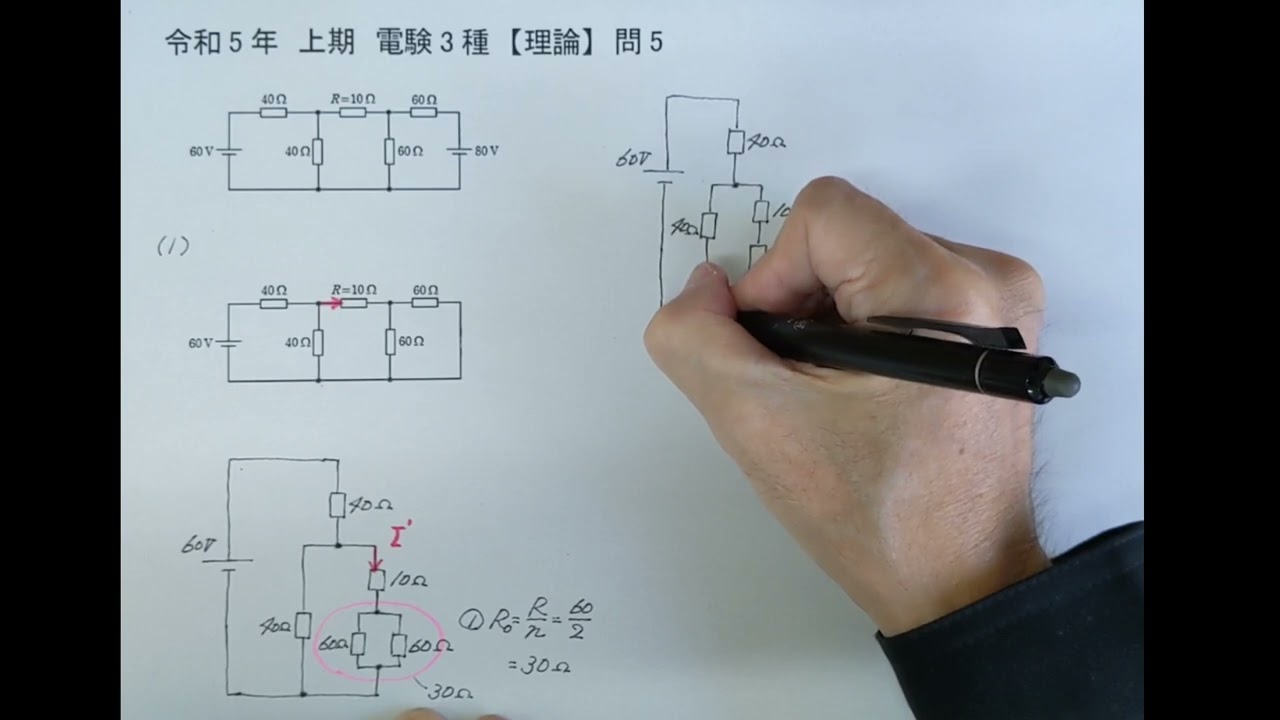 令和5年 上期 電験3種【理論】問5
40Ω R=10Ω 60Ω
60V 40Ω 60Ω 80V
(1)
40Ω R=10Ω 60Ω
60V 40Ω 60Ω
40Ω
60V I'
10Ω
40Ω 60Ω 60Ω
30Ω
① R₀=R/n=60/2
=30Ω
40Ω
60V
40Ω 10